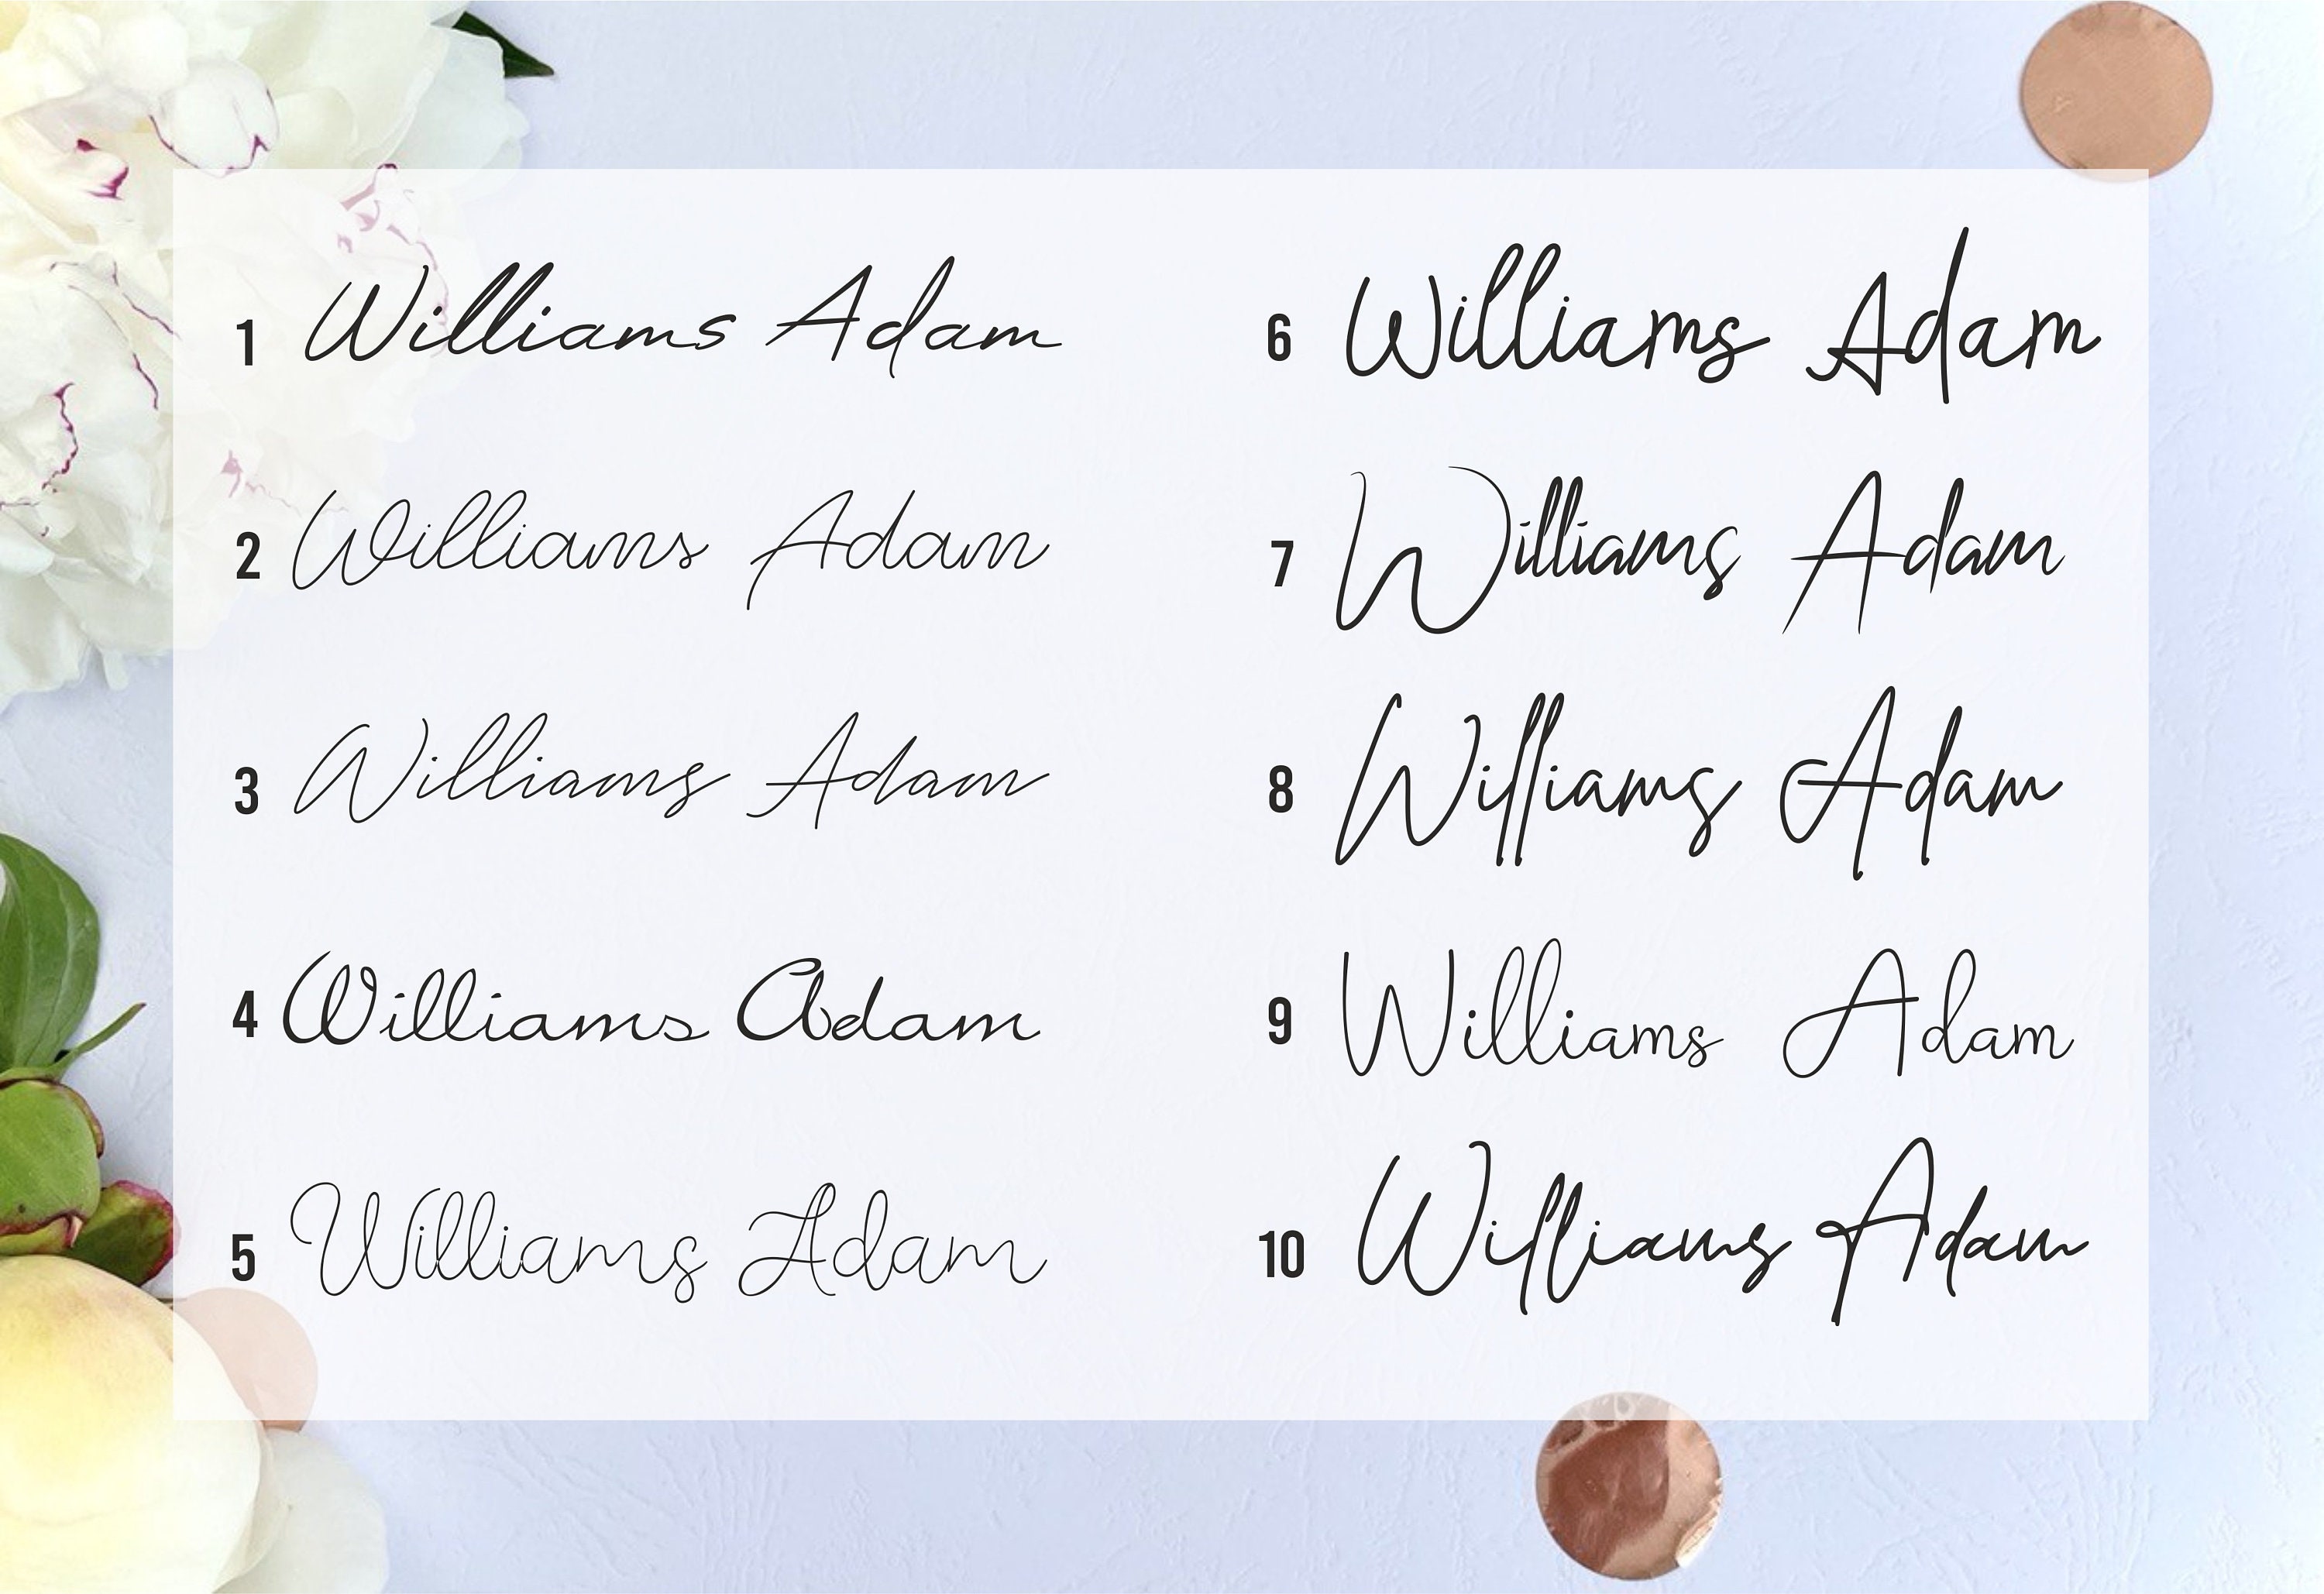 1 Williams Adam
2 Williams Adam
3 Williams Adam
4 Williams Adam
5 Williams Adam
6 Williams Adam
7 Williams Adam
8 Williams Adam
9 Williams Adam
10 Williams Adam